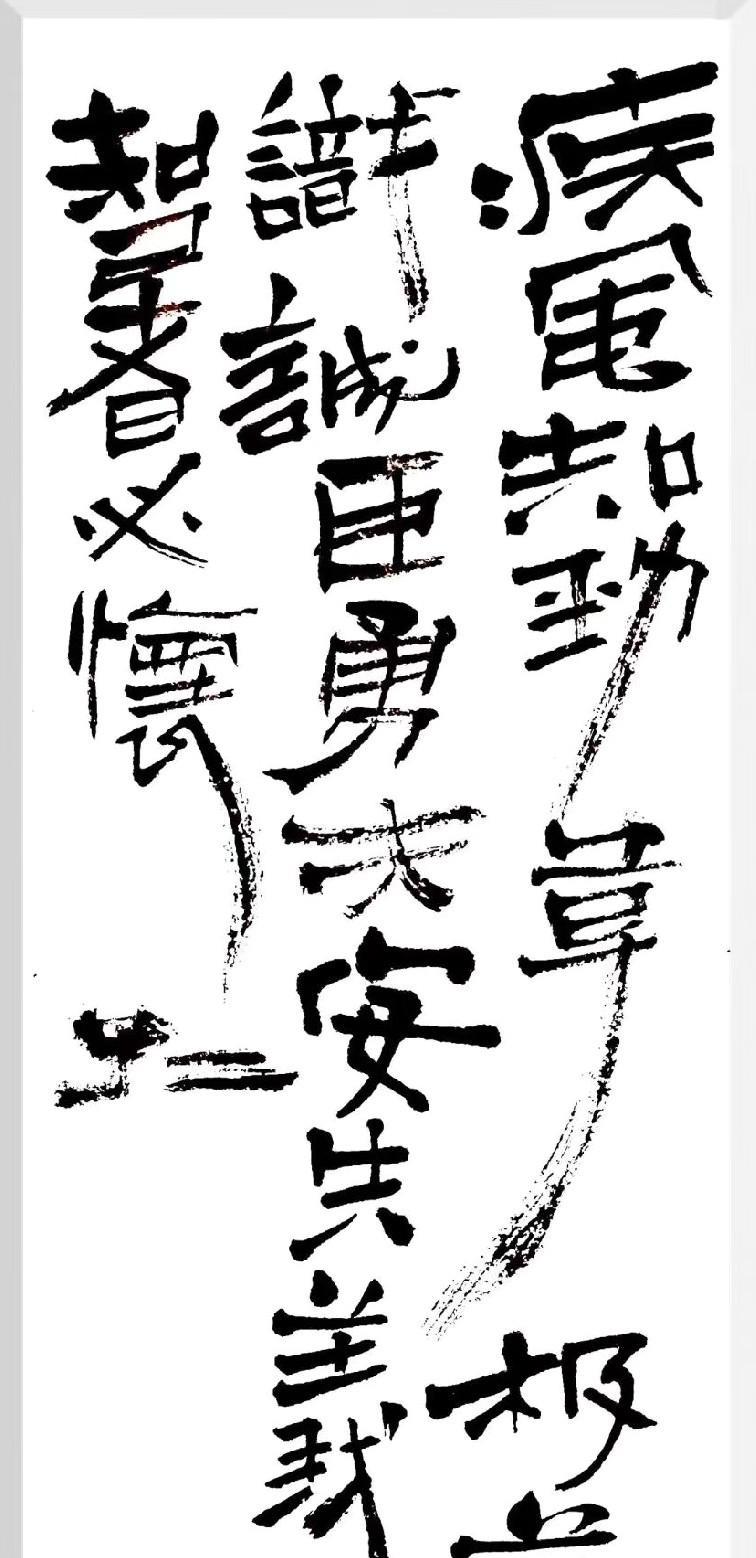 疾風知勁草板
識誠臣勇夫安義
智者必懷仁